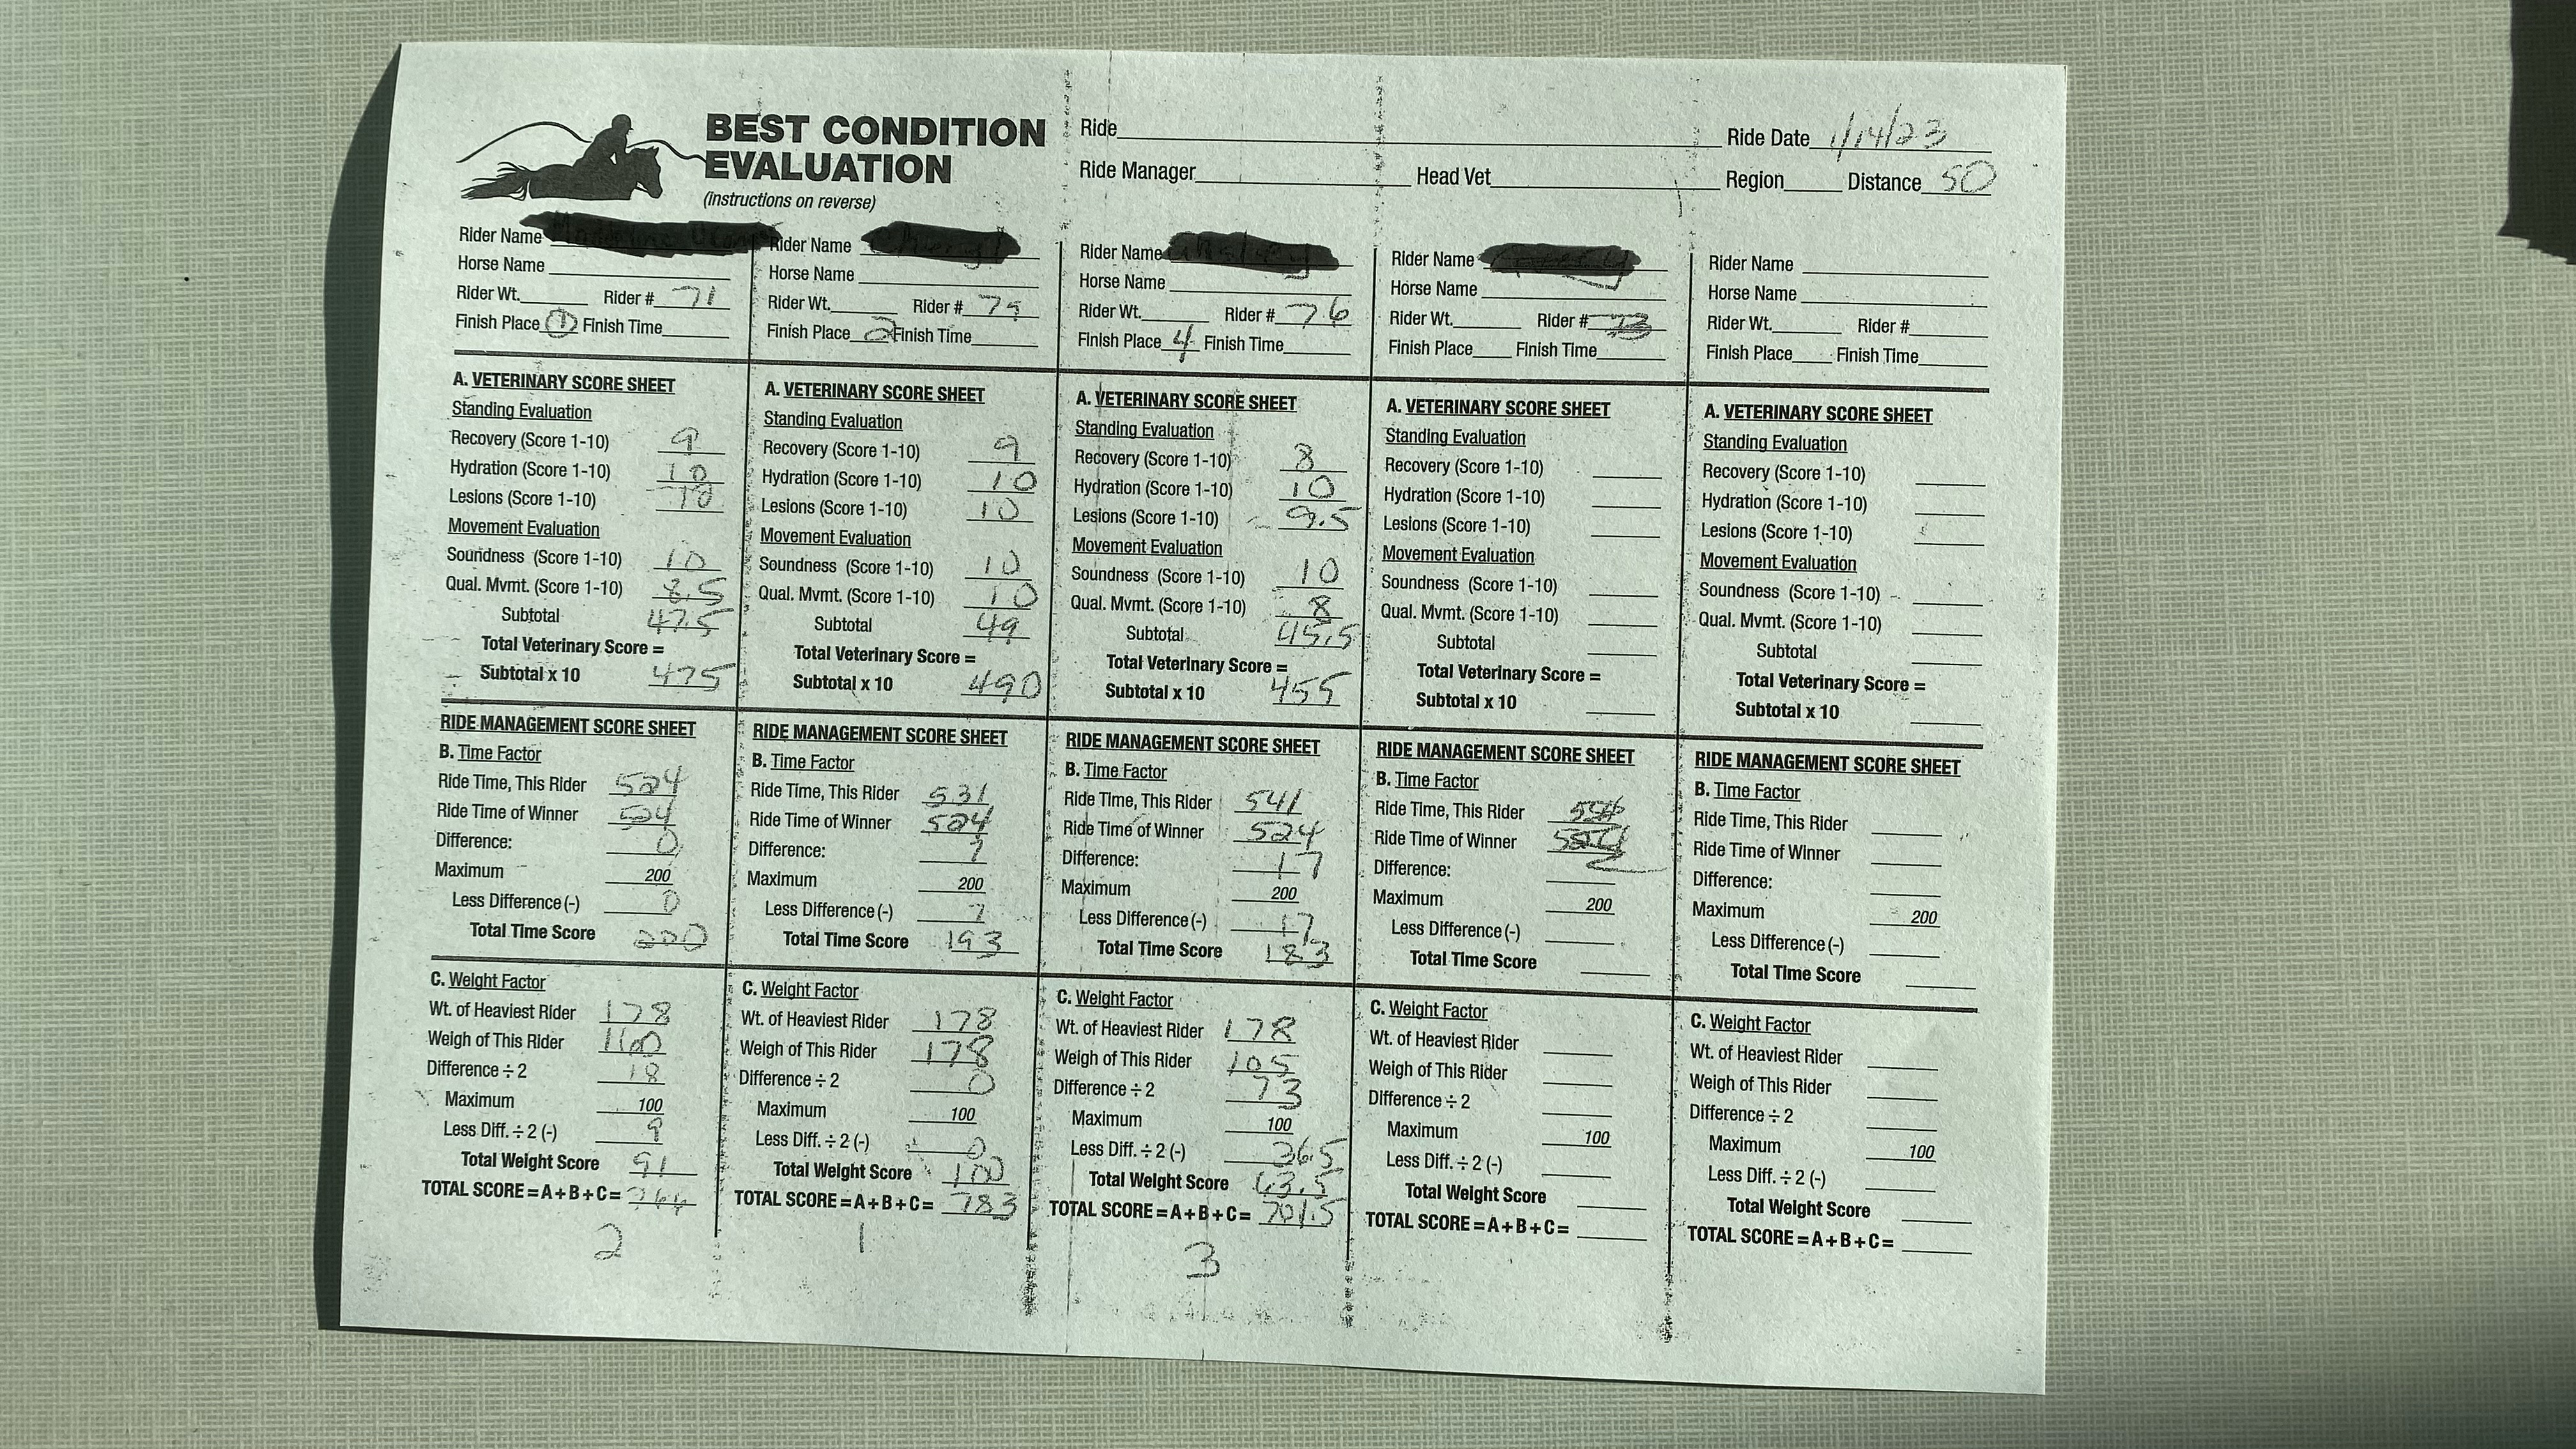 BEST CONDITION
EVALUATION
(instructions on reverse)
Ride
Ride Date 1/14/23
Ride Manager Head Vet Region Distance 50
Rider Name
Horse Name
Rider Wt. Rider # 71
Finish Place 1 Finish Time
A. VETERINARY SCORE SHEET
Standing Evaluation
Recovery (Score 1-10) 9
Hydration (Score 1-10) 10
Lesions (Score 1-10) 10
Movement Evaluation
Soundness (Score 1-10) 10
Qual. Mvmt. (Score 1-10) 8.5
Subtotal 47.5
Total Veterinary Score =
Subtotal x 10 475
RIDE MANAGEMENT SCORE SHEET
B. Time Factor
Ride Time, This Rider 524
Ride Time of Winner 524
Difference: 0
Maximum 200
Less Difference (-) 0
Total Time Score 200
C. Weight Factor
Wt. of Heaviest Rider 178
Weigh of This Rider 160
Difference ÷ 2 18
Maximum 100
Less Diff. ÷ 2 (-) 9
Total Weight Score 91
TOTAL SCORE = A + B + C =
2
Rider Name
Horse Name
Rider Wt. Rider #
Finish Place 2 Finish Time
A. VETERINARY SCORE SHEET
Standing Evaluation
Recovery (Score 1-10) 9
Hydration (Score 1-10) 10
Lesions (Score 1-10) 10
Movement Evaluation
Soundness (Score 1-10) 10
Qual. Mvmt. (Score 1-10) 10
Subtotal 49
Total Veterinary Score =
Subtotal x 10 490
RIDE MANAGEMENT SCORE SHEET
B. Time Factor
Ride Time, This Rider 531
Ride Time of Winner 524
Difference: 7
Maximum 200
Less Difference (-) 7
Total Time Score 193
C. Weight Factor
Wt. of Heaviest Rider 178
Weigh of This Rider 178
Difference ÷ 2 0
Maximum 100
Less Diff. ÷ 2 (-) 0
Total Weight Score 100
TOTAL SCORE = A + B + C = 783
1
Rider Name
Horse Name
Rider Wt. Rider # 76
Finish Place 4 Finish Time
A. VETERINARY SCORE SHEET
Standing Evaluation
Recovery (Score 1-10) 8
Hydration (Score 1-10) 10
Lesions (Score 1-10) 9.5
Movement Evaluation
Soundness (Score 1-10) 10
Qual. Mvmt. (Score 1-10) 8
Subtotal 45.5
Total Veterinary Score =
Subtotal x 10 455
RIDE MANAGEMENT SCORE SHEET
B. Time Factor
Ride Time, This Rider 541
Ride Time of Winner 524
Difference: 17
Maximum 200
Less Difference (-) 17
Total Time Score 183
C. Weight Factor
Wt. of Heaviest Rider 178
Weigh of This Rider 105
Difference ÷ 2 73
Maximum 100
Less Diff. ÷ 2 (-) 36.5
Total Weight Score 63.5
TOTAL SCORE = A + B + C = 701.5
3
Rider Name
Horse Name
Rider Wt. Rider #
Finish Place Finish Time
A. VETERINARY SCORE SHEET
Standing Evaluation
Recovery (Score 1-10)
Hydration (Score 1-10)
Lesions (Score 1-10)
Movement Evaluation
Soundness (Score 1-10)
Qual. Mvmt. (Score 1-10)
Subtotal
Total Veterinary Score =
Subtotal x 10
RIDE MANAGEMENT SCORE SHEET
B. Time Factor
Ride Time, This Rider
Ride Time of Winner
Difference:
Maximum 200
Less Difference (-)
Total Time Score
C. Weight Factor
Wt. of Heaviest Rider
Weigh of This Rider
Difference ÷ 2
Maximum 100
Less Diff. ÷ 2 (-)
Total Weight Score
TOTAL SCORE = A + B + C =
Rider Name
Horse Name
Rider Wt. Rider #
Finish Place Finish Time
A. VETERINARY SCORE SHEET
Standing Evaluation
Recovery (Score 1-10)
Hydration (Score 1-10)
Lesions (Score 1-10)
Movement Evaluation
Soundness (Score 1-10)
Qual. Mvmt. (Score 1-10)
Subtotal
Total Veterinary Score =
Subtotal x 10
RIDE MANAGEMENT SCORE SHEET
B. Time Factor
Ride Time, This Rider
Ride Time of Winner
Difference:
Maximum 200
Less Difference (-)
Total Time Score
C. Weight Factor
Wt. of Heaviest Rider
Weigh of This Rider
Difference ÷ 2
Maximum 100
Less Diff. ÷ 2 (-)
Total Weight Score
TOTAL SCORE = A + B + C =